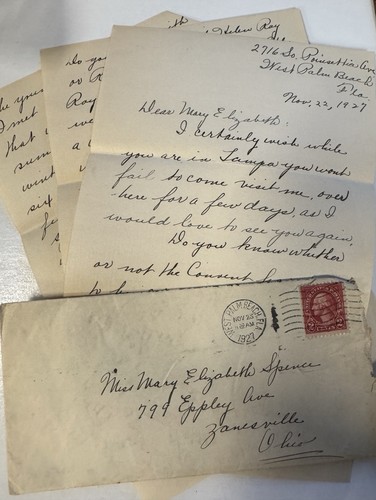 2716 So. Poinsettia Ave
West Palm Beach
Fla
Nov. 22, 1927
Dear Mary Elizabeth:
I certainly wish while
you are in Tampa you wont
fail to come visit me, over
here for a few days, as I
would love to see you again,
Do you know whether
or not the
Helen Roy
Do yo
or R
Roy
we
a
I met
that
sum
wint
six
WEST PALM BEACH, FLA.
NOV 23
AM
1927
2 2
Miss Mary Elizabeth Spence
799 Eppley Ave
Zanesville
Ohio